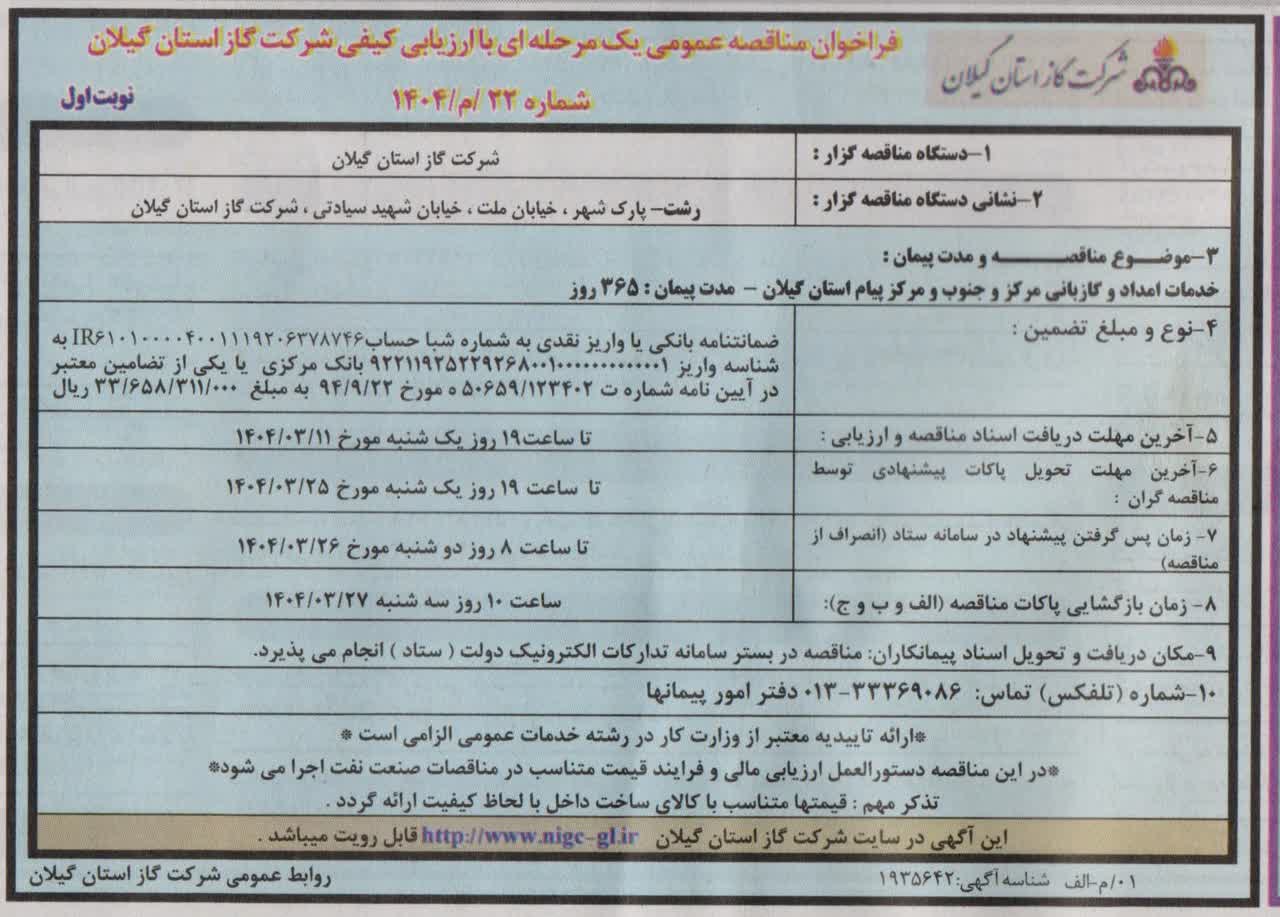 شرکت گاز استان گیلان
فراخوان مناقصه عمومی یک مرحله ای با ارزیابی کیفی شرکت گاز استان گیلان
شماره ۲۲ /م/۱۴۰۴
نوبت اول
۱-دستگاه مناقصه گزار :
شرکت گاز استان گیلان
۲-نشانی دستگاه مناقصه گزار :
رشت- پارک شهر ، خیابان ملت ، خیابان شهید سیادتی ، شرکت گاز استان گیلان
۳-موضوع مناقصه و مدت پیمان :
خدمات امداد و گازبانی مرکز و جنوب و مرکز پیام استان گیلان - مدت پیمان : ۳۶۵ روز
۴-نوع و مبلغ تضمین :
ضمانتنامه بانکی یا واریز نقدی به شماره شبا حساب IR۶۱۰۱۰۰۰۰۴۰۰۱۱۱۹۲۰۶۳۷۸۷۴۶ به
شناسه واریز ۹۲۲۱۱۹۲۵۲۲۹۲۶۸۰۰۱۰۰۰۰۰۰۰۰۰۰۰۰۱ بانک مرکزی یا یکی از تضامین معتبر
در آیین نامه شماره ت ۵۰۶۵۹/۱۲۳۴۰۲ ه مورخ ۹۴/۹/۲۲ به مبلغ ۳۳/۶۵۸/۳۱۱/۰۰۰ ریال
۵-آخرین مهلت دریافت اسناد مناقصه و ارزیابی :
تا ساعت۱۹ روز یک شنبه مورخ ۱۴۰۴/۰۳/۱۱
۶-آخرین مهلت تحویل پاکات پیشنهادی توسط
مناقصه گران :
تا ساعت ۱۹ روز یک شنبه مورخ ۱۴۰۴/۰۳/۲۵
۷- زمان پس گرفتن پیشنهاد در سامانه ستاد (انصراف از
مناقصه)
تا ساعت ۸ روز دو شنبه مورخ ۱۴۰۴/۰۳/۲۶
۸- زمان بازگشایی پاکات مناقصه (الف و ب و ج):
ساعت ۱۰ روز سه شنبه ۱۴۰۴/۰۳/۲۷
۹-مکان دریافت و تحویل اسناد پیمانکاران: مناقصه در بستر سامانه تدارکات الکترونیک دولت ( ستاد ) انجام می پذیرد.
۱۰-شماره (تلفکس) تماس: ۳۳۳۶۹۰۸۶-۰۱۳ دفتر امور پیمانها
*ارائه تاییدیه معتبر از وزارت کار در رشته خدمات عمومی الزامی است *
*در این مناقصه دستورالعمل ارزیابی مالی و فرایند قیمت متناسب در مناقصات صنعت نفت اجرا می شود*
تذکر مهم : قیمتها متناسب با کالای ساخت داخل با لحاظ کیفیت ارائه گردد .
این آگهی در سایت شرکت گاز استان گیلان http://www.nigc-gl.ir قابل رویت میباشد .
۰۱/م-الف شناسه آگهی:۱۹۳۵۶۴۲
روابط عمومی شرکت گاز استان گیلان